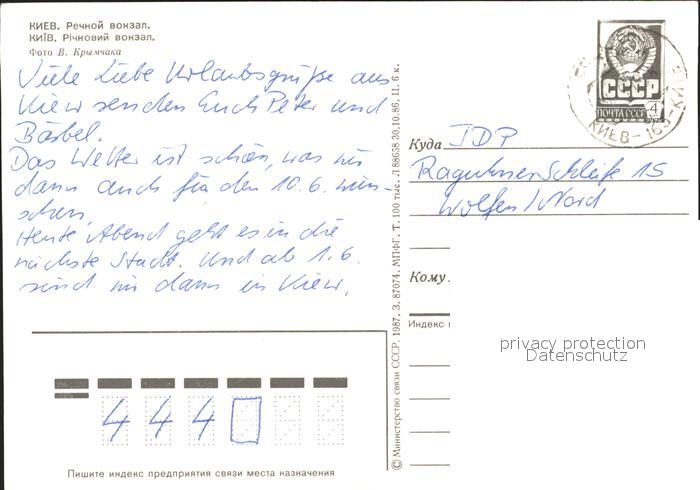 КИЕВ. Речной вокзал.
КИЇВ. Річковий вокзал.
Фото В. Крымчака
Viele Liebe Urlaubsgrüße aus
Kiew senden Euch Peter und
Bärbel.
Das Wetter ist schön, was wir
dann auch für den 10.6. wün-
schen.
Heute Abend geht es in die
nächste Stadt. Und ab 1.6.
sind wir dann in Kiew.
4 4 4 0
Пишите индекс предприятия связи места назначения
© Министерство связи СССР, 1987. З. 87074. МПФГ. Т. 100 тыс. Л 88658 20.10.86. Ц. 6 к.
СССР
ПОЧТА СССР 4
КИЕВ-165
Куда JDP
Raguhner Schleife 15
Wolfen/Nord
Кому
Индекс
privacy protection
Datenschutz